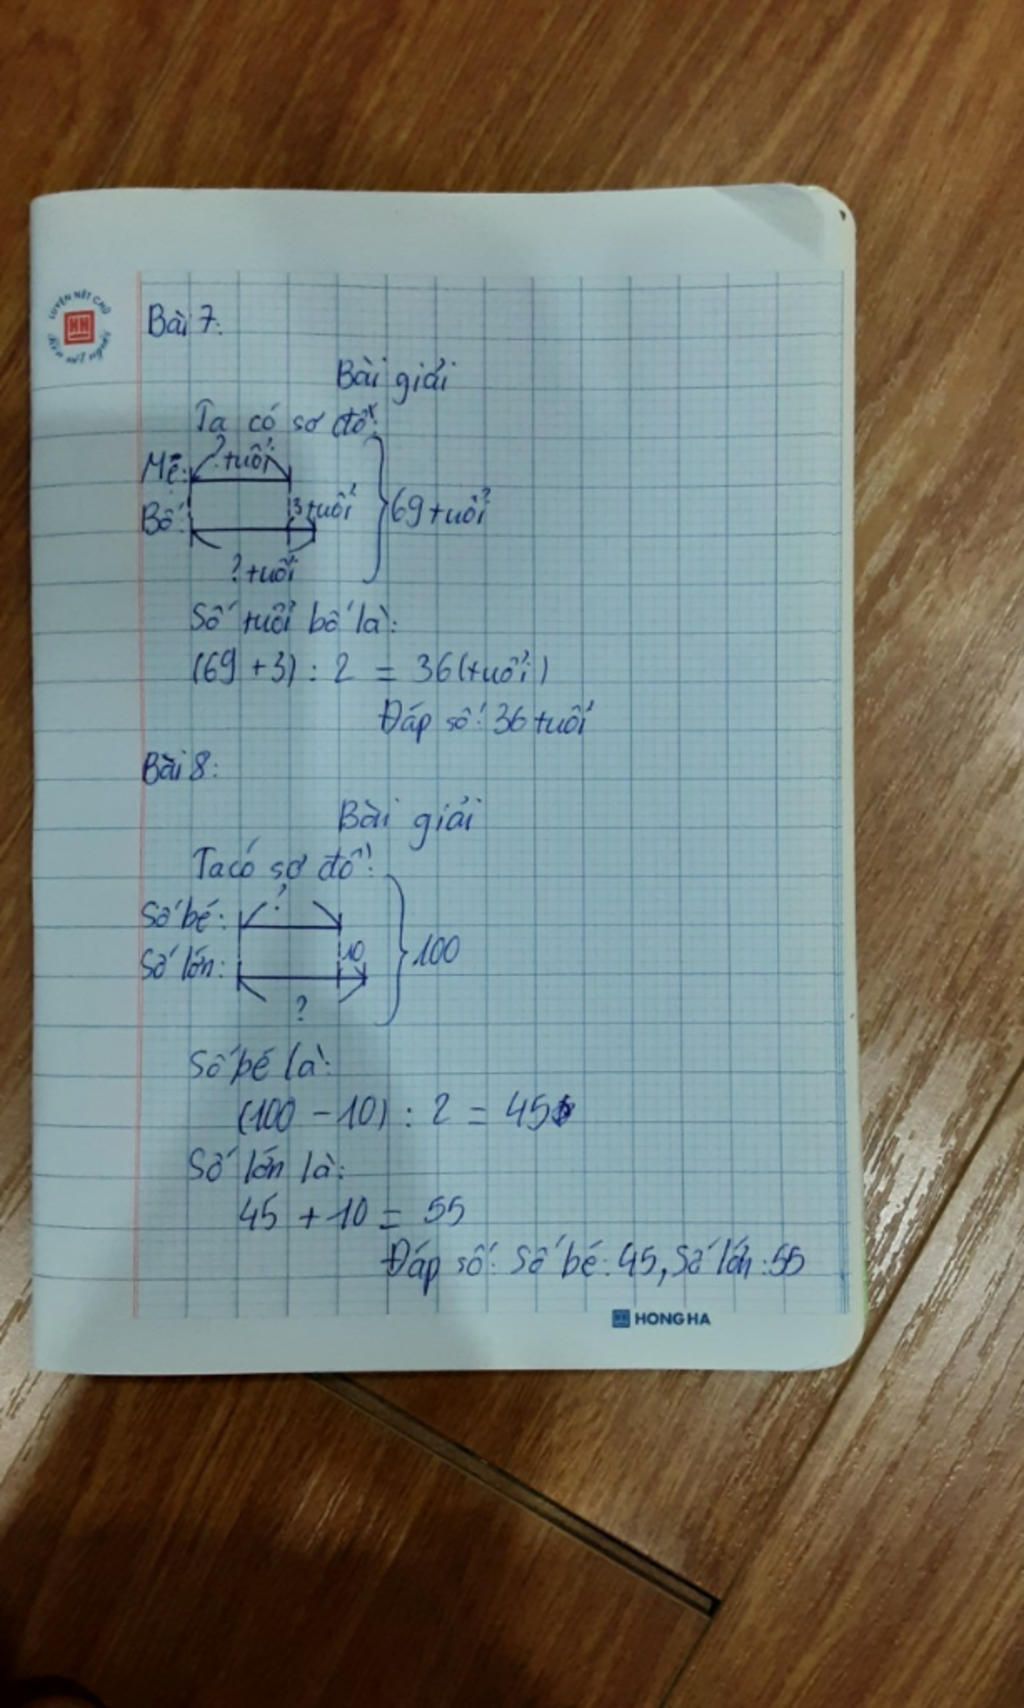 LUYỆN NÉT CHỮ
HH
Rèn nết người
Bài 7:
Bài giải
Ta có sơ đồ:
? tuổi
Mẹ:
3 tuổi
Bố:
69 tuổi
? tuổi
Số tuổi bố là:
(69 + 3) : 2 = 36 (tuổi)
Đáp số: 36 tuổi
Bài 8:
Bài giải
Ta có sơ đồ:
?
Số bé:
10
Số lớn:
100
?
Số bé là:
(100 - 10) : 2 = 45
Số lớn là:
45 + 10 = 55
Đáp số: Số bé: 45, Số lớn: 55
HH HONG HA